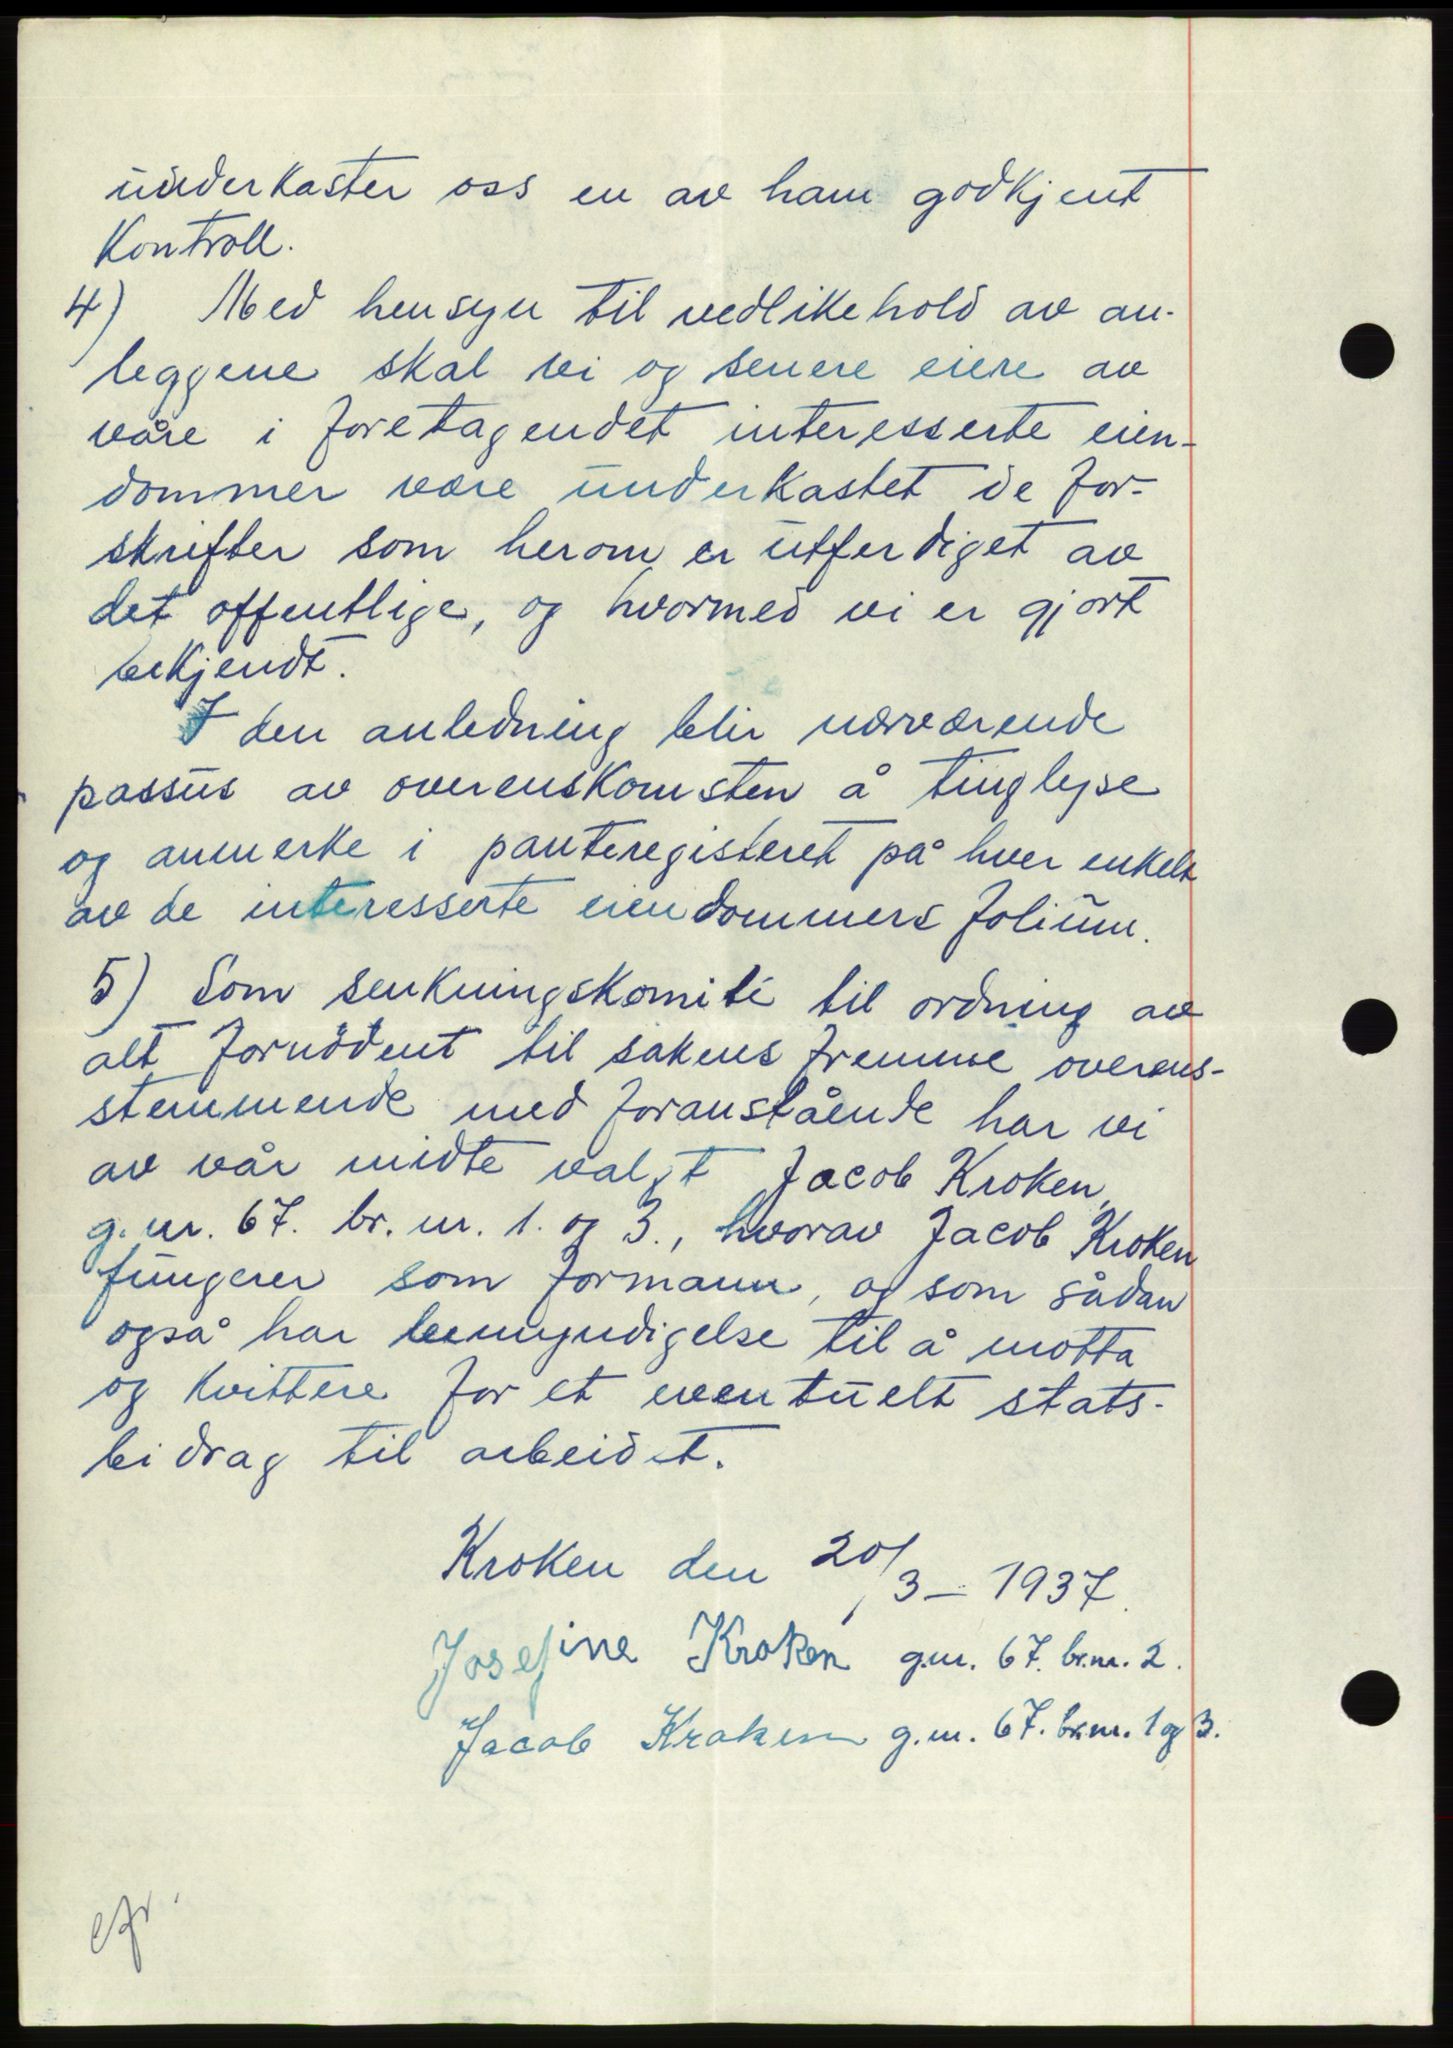 underkaster oss en av ham godkjent
Kontroll.
4) Med hensyn til vedlikehold av an-
leggene skal vi og senere eiere av
våre i foretagendet interesserte eien-
dommer være underkastet de for-
skrifter som herom er utferdiget av
det offentlige, og hvormed vi er gjort
bekjendt.
I den anledning blir nærværende
passus av overenskomsten å tinglyse
og anmerke i panteregisteret på hver enkelt
av de interesserte eiendommers folium.
5) Som senkningskomité til ordning av
alt fornödent til sakens fremme overens-
stemmende med foranstående har vi
av vår midte valgt Jacob Kroken,
g.nr. 67. br. nr. 1. og 3., hvorav Jacob Kroken
fungerer som formann, og som sådan
også har bemyndigelse til å motta
og kvittere for et eventuelt stats-
bidrag til arbeidet.
Kroken den 20/3 – 1937.
Josefine Kroken g.nr. 67. br.nr. 2.
Jacob Kroken g.nr. 67. br.nr. 1 og 3.